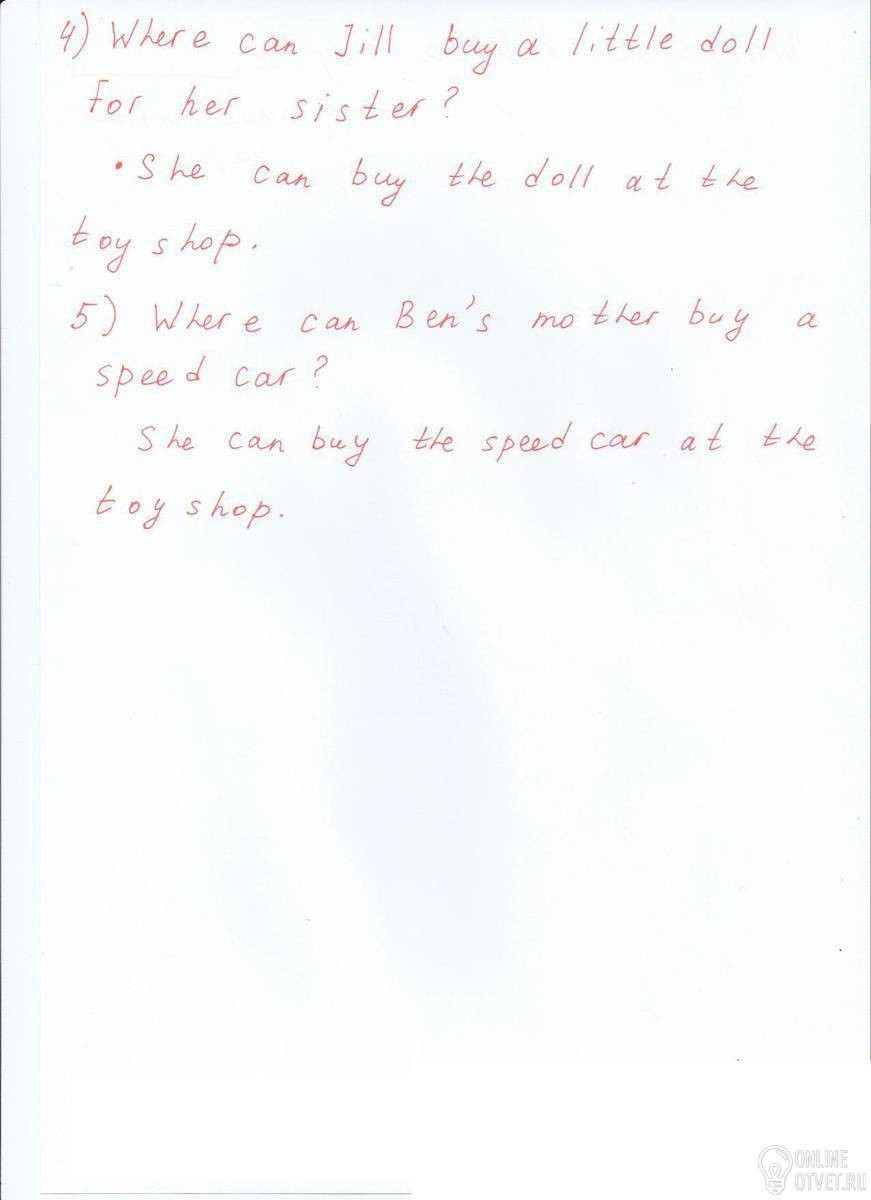 4) Where can Jill buy a little doll
for her sister?
• She can buy the doll at the
toy shop.
5) Where can Ben's mother buy a
speed car?
She can buy the speed car at the
toy shop.
ONLINE
OTVET.RU